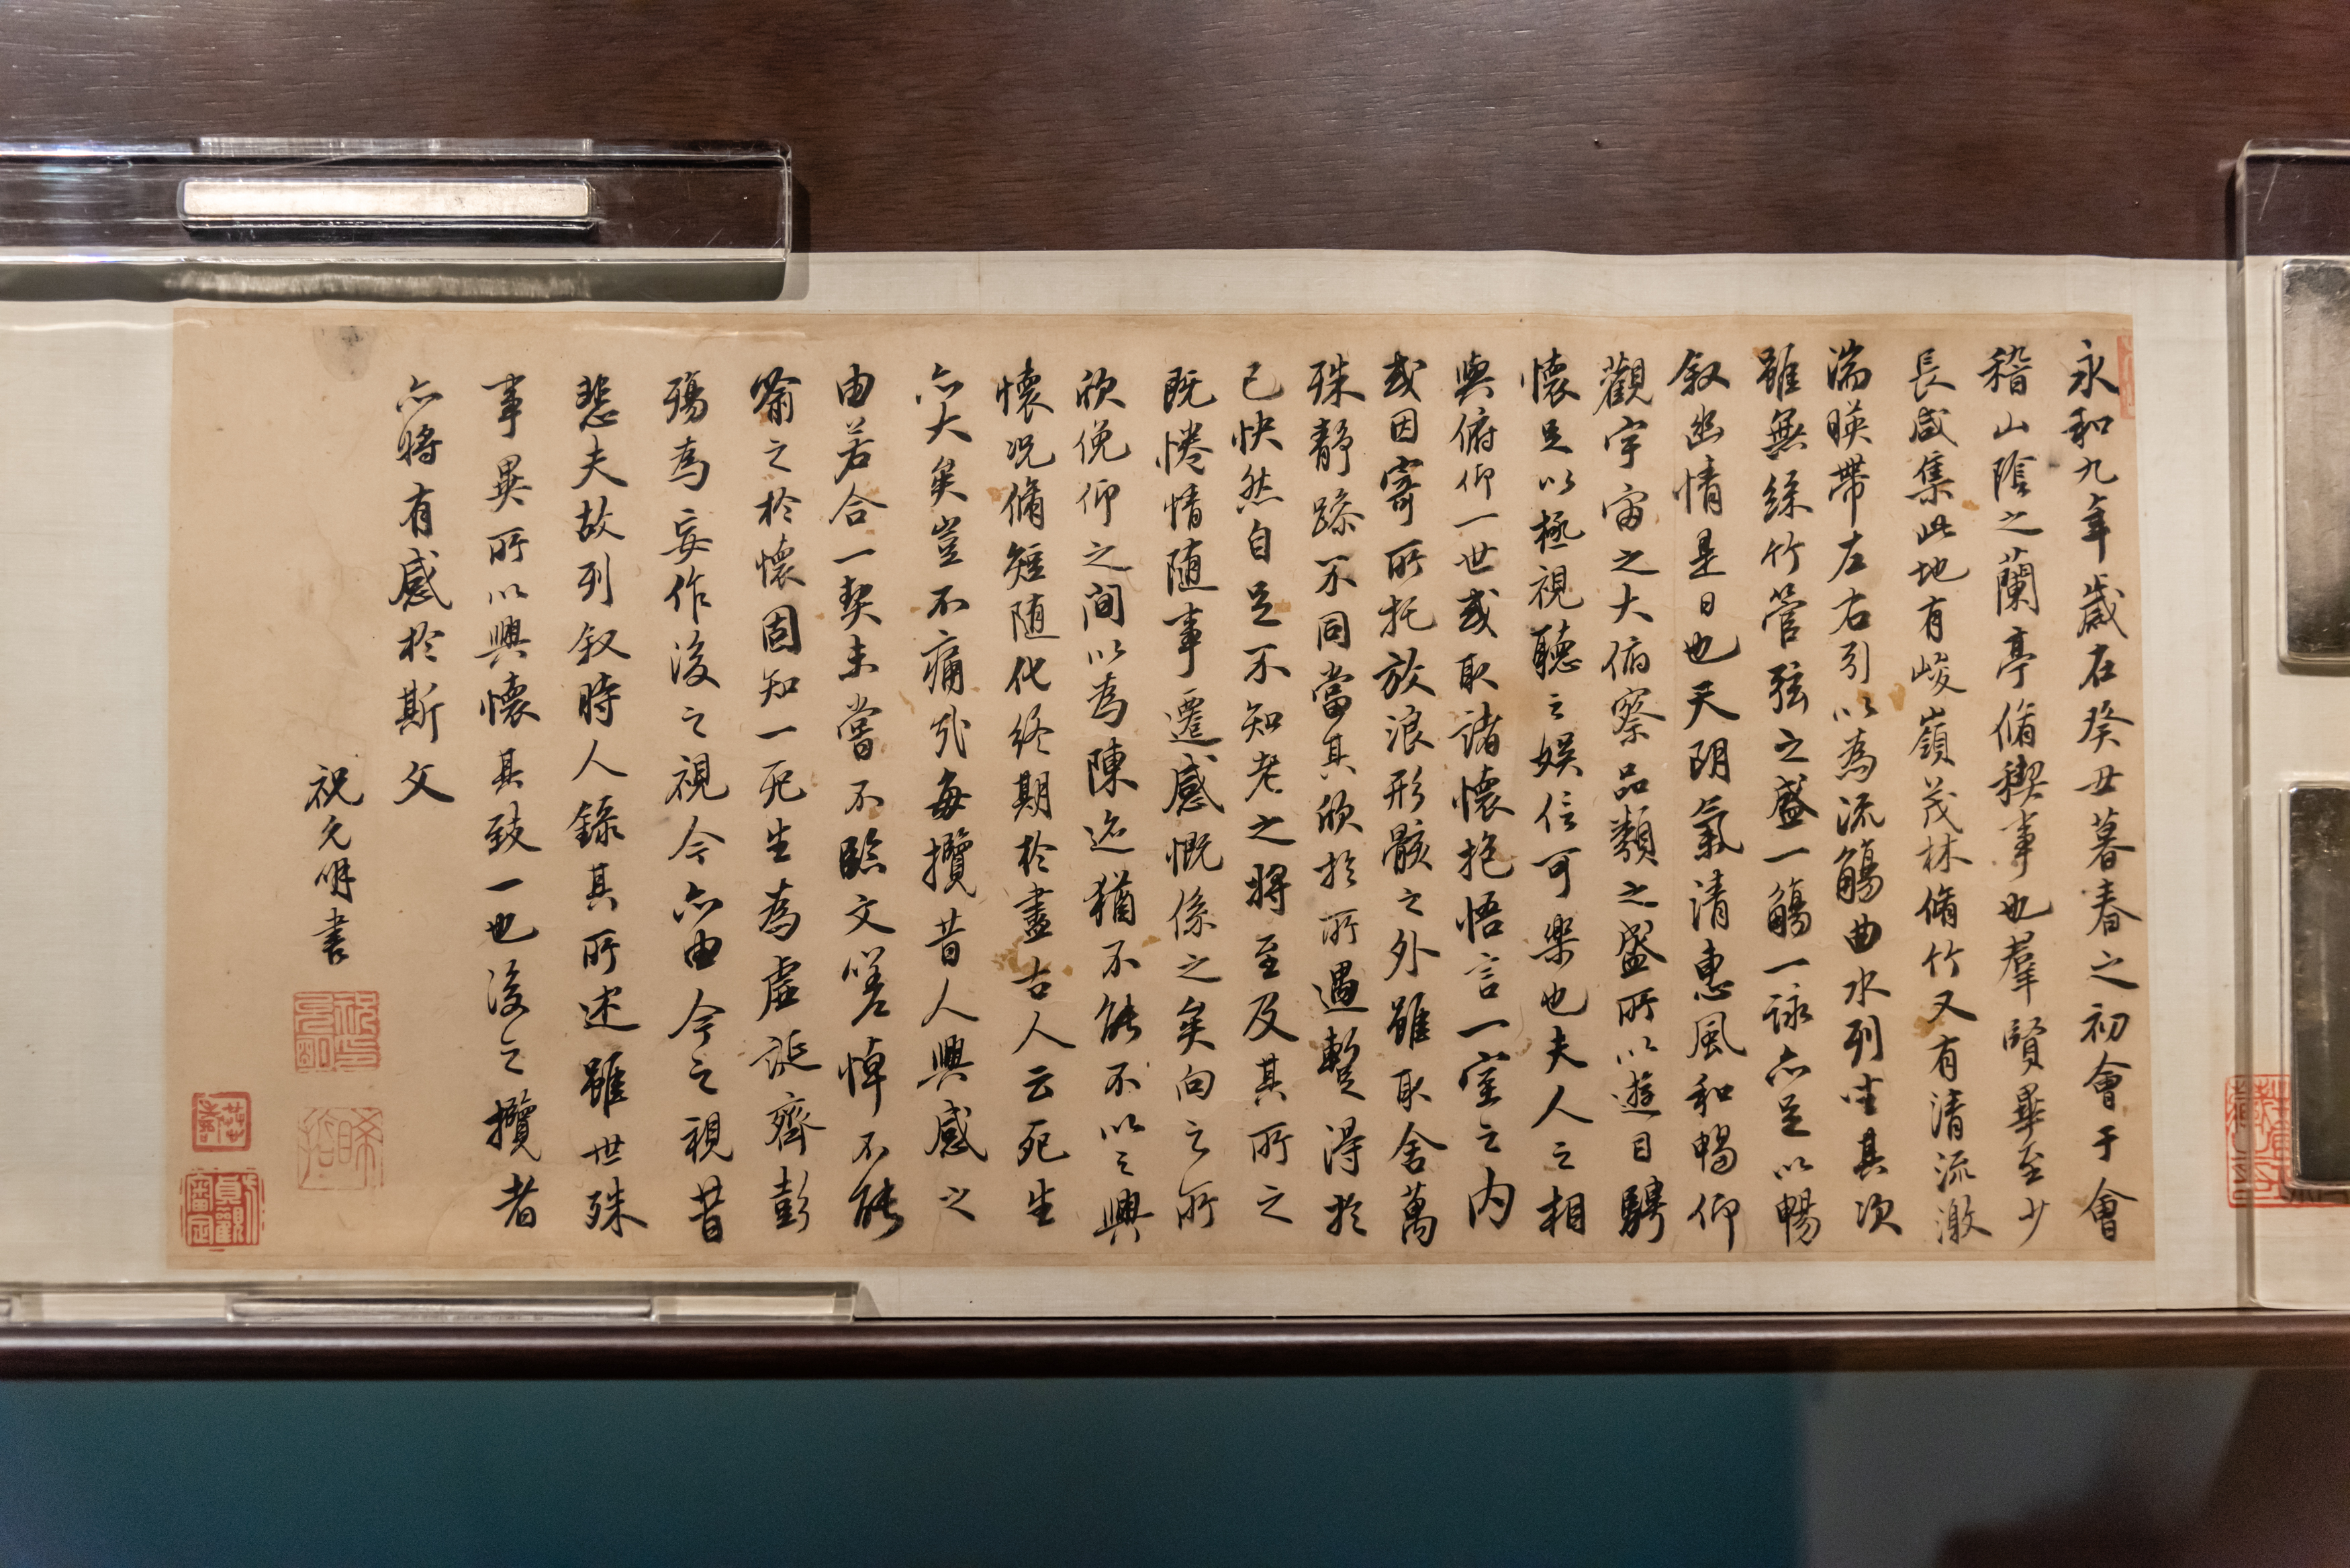 永和九年歲在癸丑暮春之初會于會
稽山陰之蘭亭脩稧事也羣賢畢至少
長咸集此地有峻嶺茂林脩竹又有清流激
湍暎帶左右引以為流觴曲水列坐其次
雖無絲竹管弦之盛一觴一詠亦足以暢
叙幽情是日也天朗氣清惠風和暢仰
觀宇宙之大俯察品類之盛所以遊目騁
懷足以極視聽之娛信可樂也夫人之相
與俯仰一世或取諸懷抱悟言一室之內
或因寄所托放浪形骸之外雖取舍萬
殊靜躁不同當其欣於所遇暫得於
己快然自足不知老之將至及其所之
既惓情随事遷感慨係之矣向之所
欣俛仰之間以為陳迹猶不能不以之興
懷況脩短随化終期於盡古人云死生
亦大矣豈不痛哉每攬昔人興感之
由若合一契未嘗不臨文嗟悼不能
喻之於懷固知一死生為虛誕齊彭
殤為妄作後之視今亦由今之視昔
悲夫故列叙時人錄其所述雖世殊
事異所以興懷其致一也後之攬者
亦將有感於斯文
祝允明書